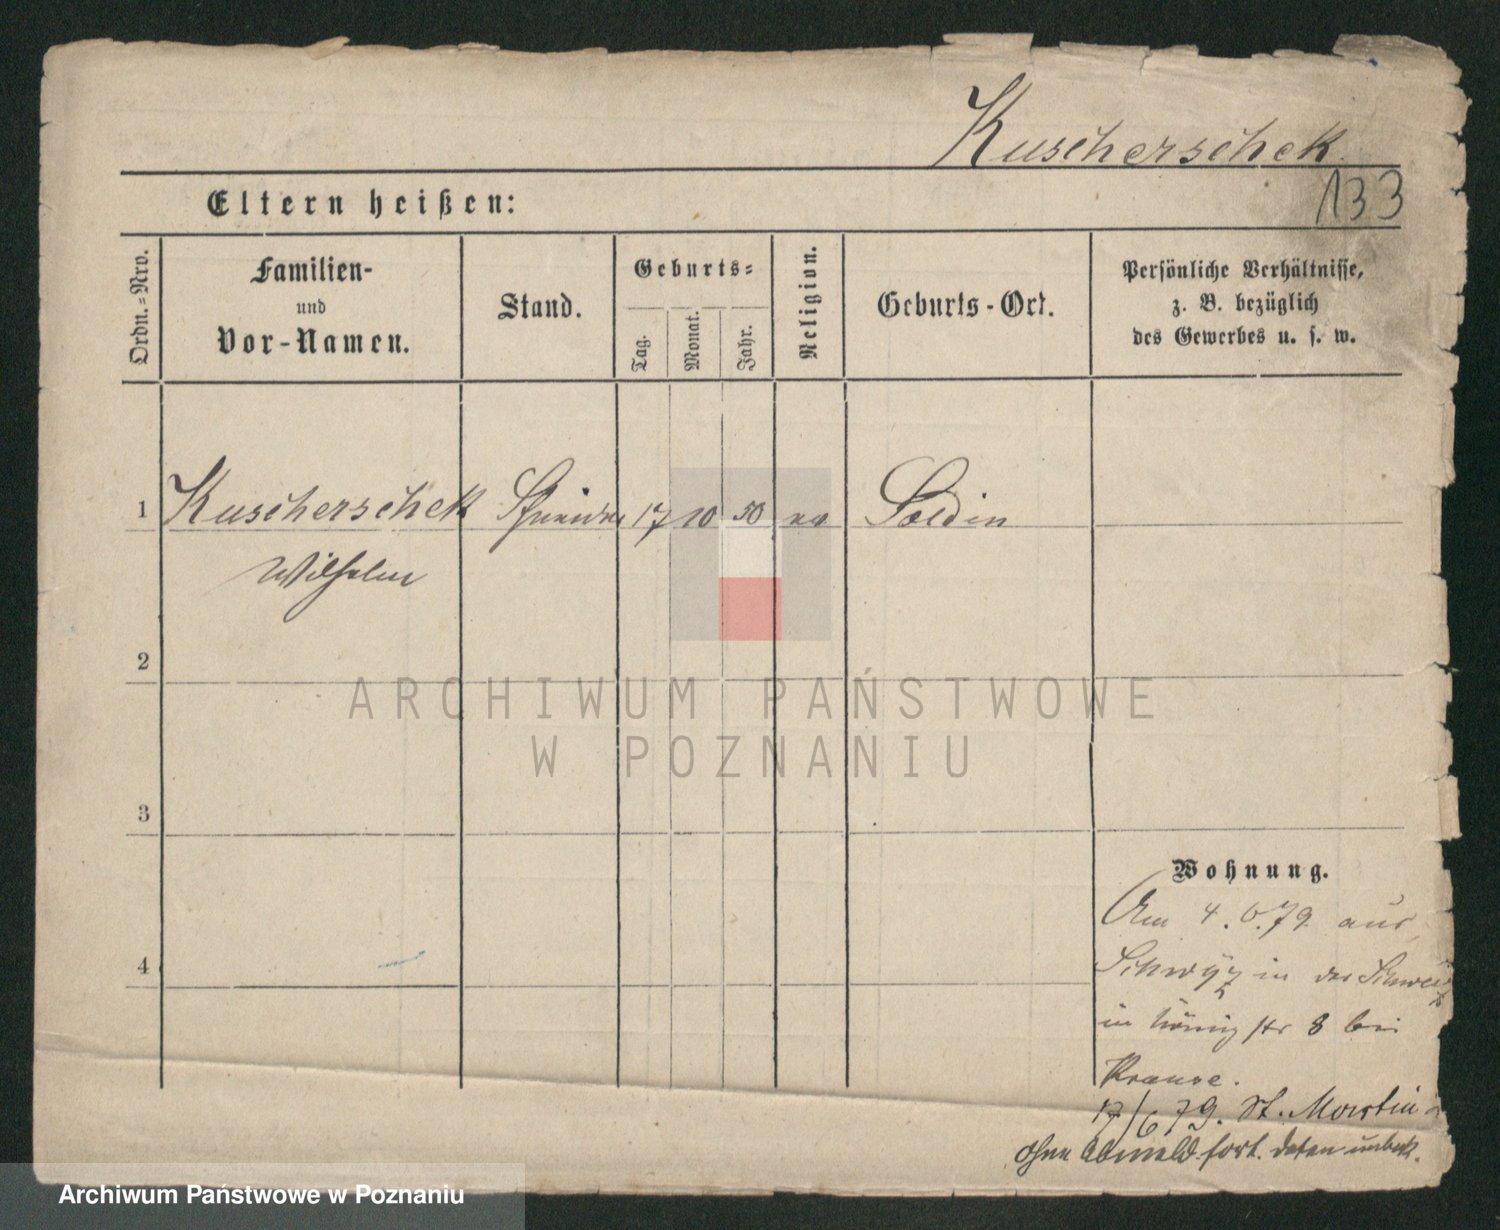 Kuscherschek.
133
Eltern heißen:
Ordn.-Nro.
Familien-
und
Vor-Namen.
Stand.
Geburts-
Tag.
Monat.
Jahr.
Religion.
Geburts-Ort.
Persönliche Verhältnisse,
z. B. bezüglich
des Gewerbes u. s. w.
1 Kuscherschek Schneider 17 10 50 ev Soldin
Wilhelm
2
ARCHIWUM PAŃSTWOWE
W POZNANIU
3
Wohnung.
Am 4.6.79 aus
4
Schwyz in der Schweiz
in König str 8 bei
Krause.
17/6 79. St. Martin
ohne Abmeld. fort. daten unbek.
Archiwum Państwowe w Poznaniu